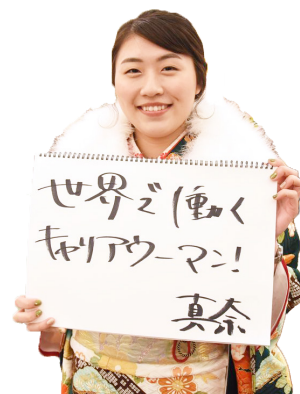 世界で働く
キャリアウーマン!
真奈